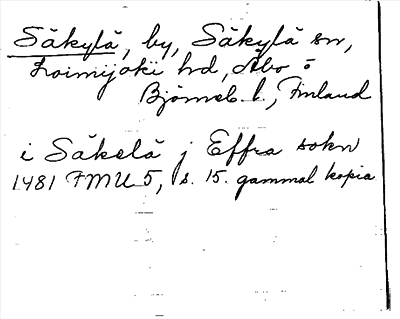 Säkylä, by, Säkylä sn,
Loimijoki hd, Åbo o
Björneb. l., Finland
i Säkelä j Effra sokn
1481 FMU 5, s. 15. gammal kopia